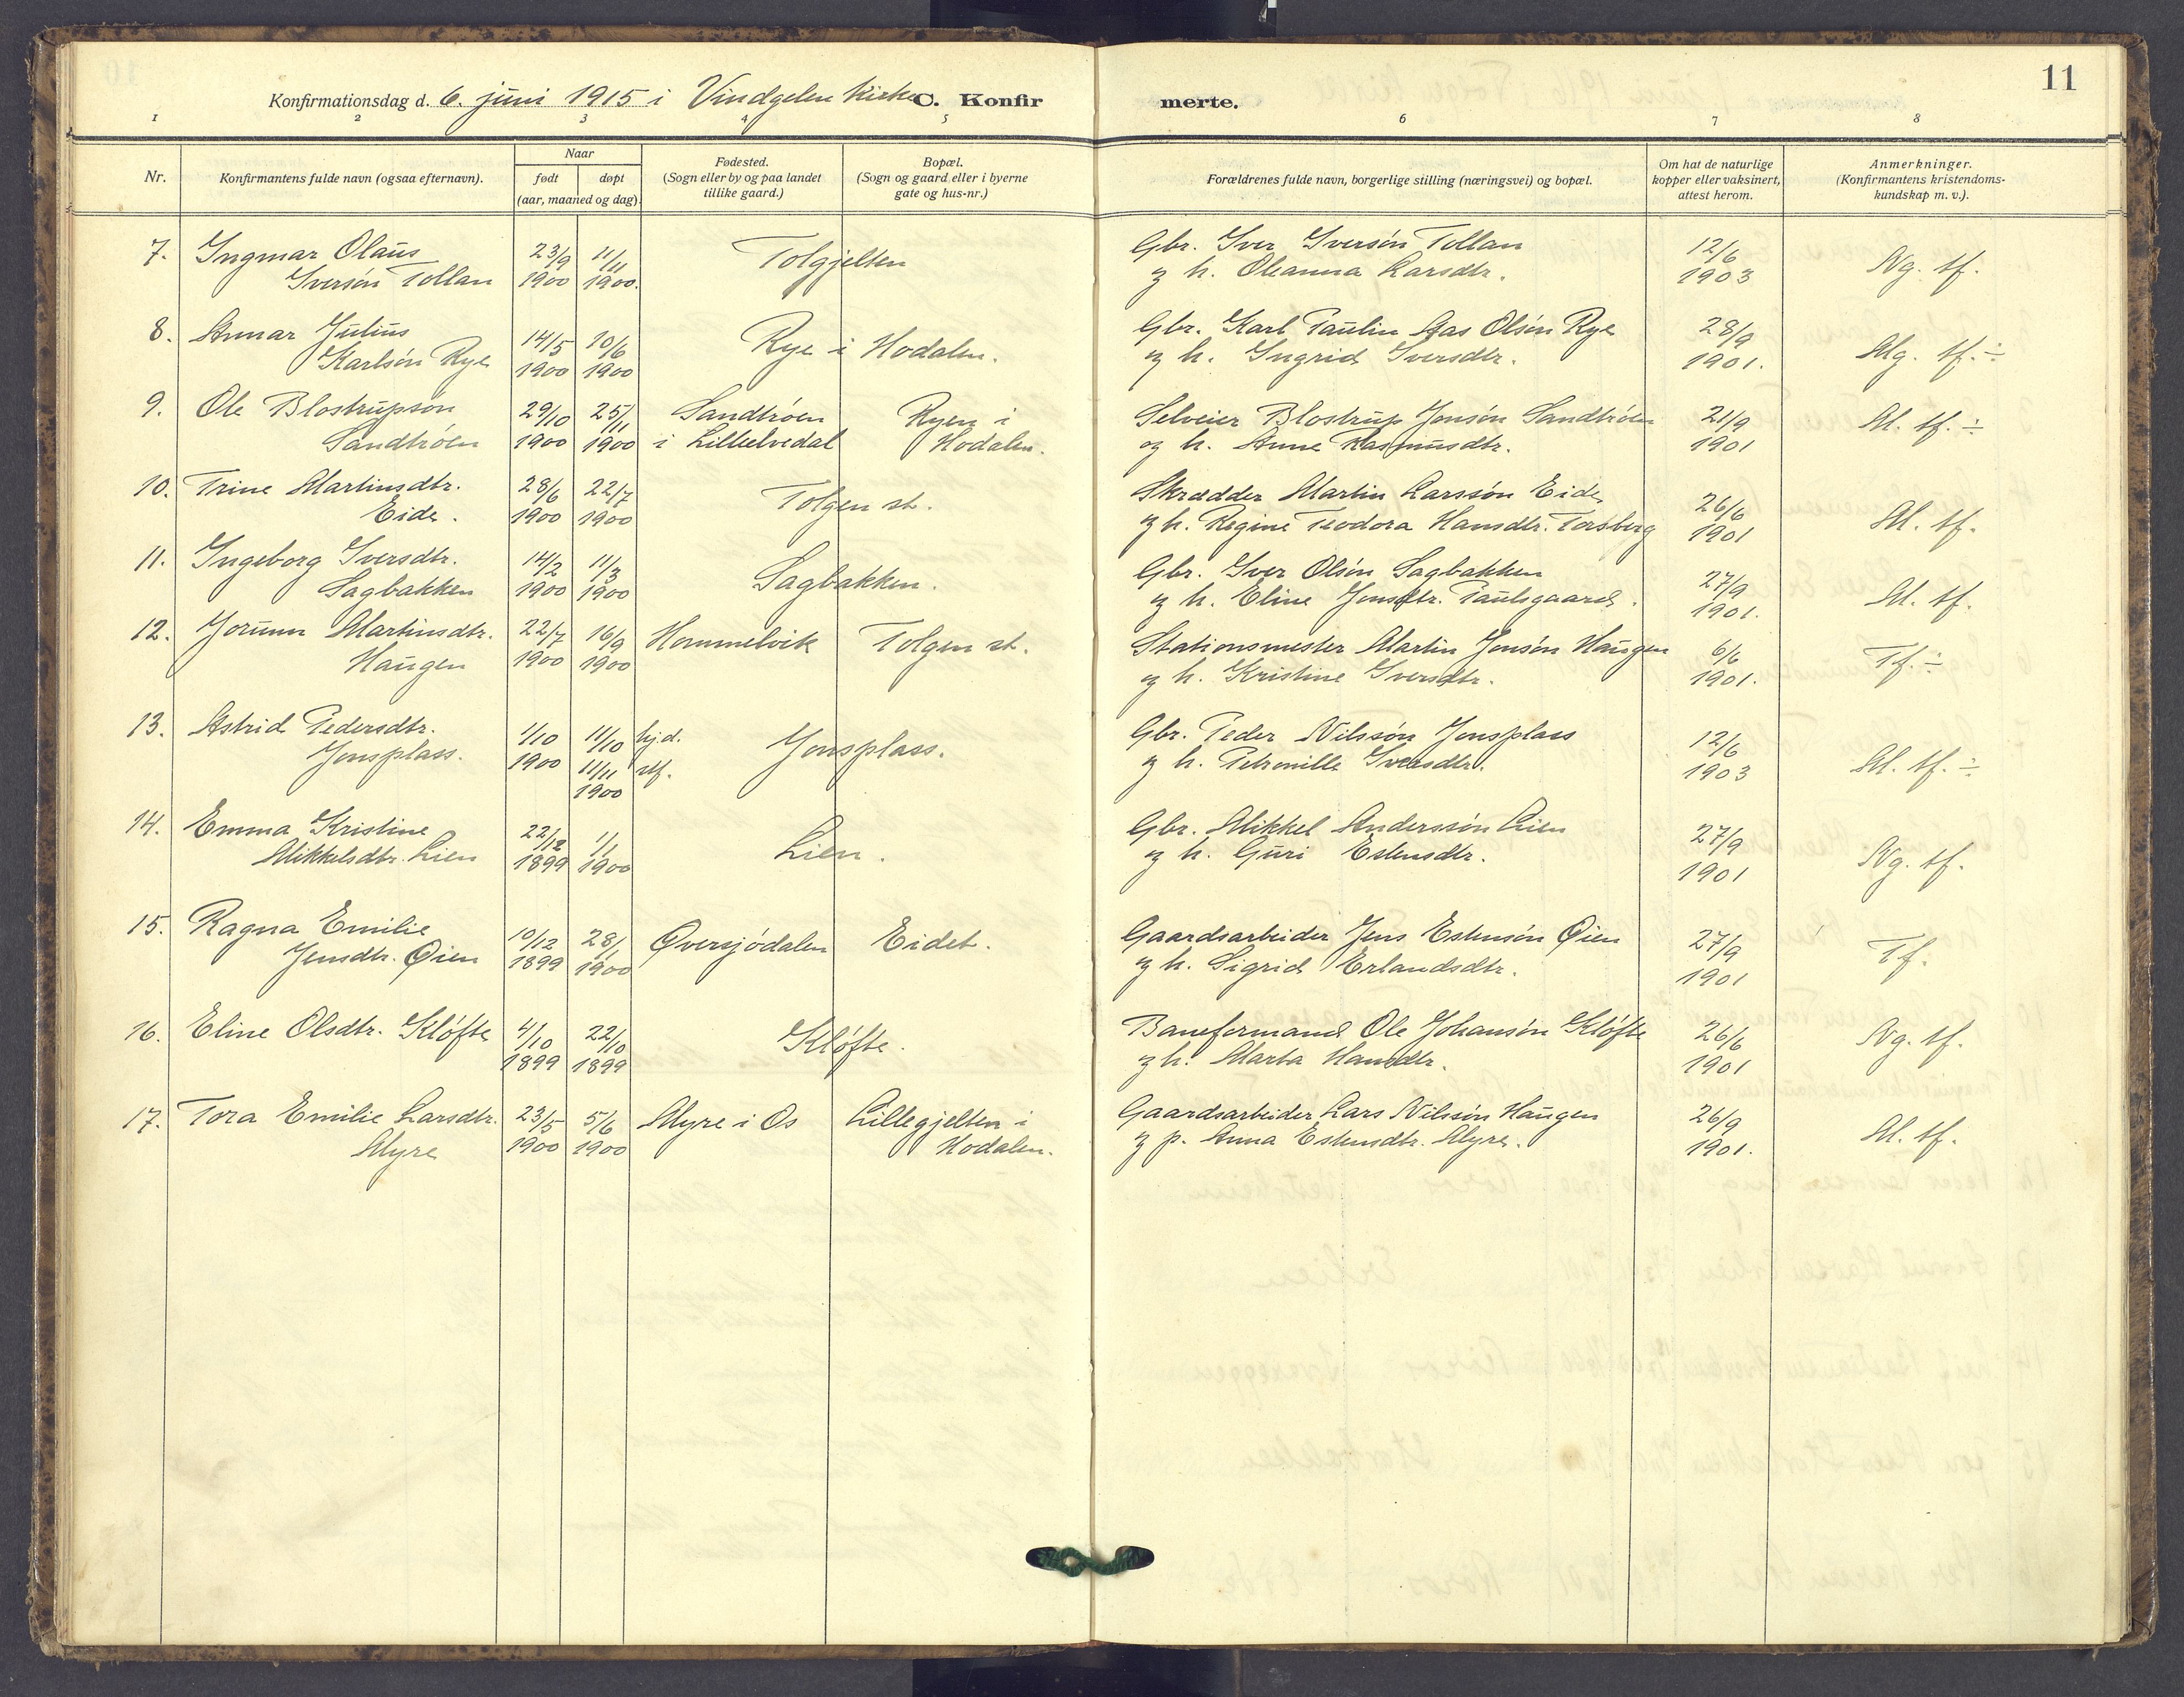 11
Konfirmationsdag d. 6. juni 1915 i Vindgelen Kirke C. Konfirmerte.
1 2 3 4 5 6 7 8
Nr.
Konfirmantens fulde navn (ogsaa efternavn).
Naar
født døpt
(aar, maaned og dag).
Fødested.
(Sogn eller by og paa landet
tillike gaard.)
Bopæl.
(Sogn og gaard eller i byerne
gate og hus-nr.)
Forældrenes fulde navn, borgerlige stilling (næringsvei) og bopæl.
Om hat de naturlige
kopper eller vaksinert,
attest herom.
Anmerkninger.
(Konfirmantens kristendoms-
kundskap m. v.).
7. Ingmar Olaus 23/9 11/11 Tolgjelten Gbr. Iver Iversøn Tollan 12/6 Ng. tf.
Iversøn Tollan 1900 1900. og h. Oleanna Larsdtr. 1903
8. Annar Julius 14/5 10/6 Rye i Hodalen. Gbr. Karl Paulin Aas Olsøn Rye 28/9 Mg. tf. ÷
Karlsøn Rye 1900 1900 og h. Ingrid Iversdtr. 1901.
9. Ole Blostrupsøn 29/10 25/11 Sandtrøen Ryen i Selveier Blostrup Jonsøn Sandtrøen 21/9 M. tf. ÷
Sandtrøen 1900 1900 i Lilleelvedal Hodalen. og h. Anne Rasmusdtr. 1901
10. Trine Martinsdtr. 28/6 22/7 Tolgen st. Skrædder Martin Larssøn Eide 26/6 M. tf.
Eide. 1900 1900 og h. Regine Teodora Hansdtr. Torsberg 1901
11. Ingeborg Iversdtr. 14/2 11/3 Sagbakken. Gbr. Iver Olsøn Sagbakken 27/9 M. tf.
Sagbakken 1900 1900 og h. Eline Jonsdtr. Paulsgaard. 1901.
12. Jorunn Martinsdtr. 22/7 16/9 Hommelvik Tolgen st. Stationsmester Martin Jonsøn Haugen 6/6 Tf. ÷
Haugen 1900 1900 og h. Kristine Iversdtr. 1901.
13. Astrid Pedersdtr. 1/10 11/10 hj.d. Jonsplass. Gbr. Peder Nilssøn Jonsplass 12/6 M. tf. ÷
Jonsplass. 1900 11/11 stf. og h. Petronille Iversdtr. 1903
1900
14. Emma Kristine 22/12 1/1 Lien. Gbr. Mikkel Anderssøn Lien 27/9 Ng. tf.
Mikkelsdtr. Lien 1899 1900 og h. Guri Estensdtr. 1901
15. Ragna Emilie 10/12 28/1 Øversjødalen Eidet. Gaardsarbeider Jens Estensøn Øien 27/9 Tf.
Jensdtr. Øien 1899 1900 og h. Sigrid Erlandsdtr. 1901
16. Eline Olsdtr. Kløfte 4/10 22/10 Kløfte. Baneformand Ole Johansøn Kløfte 26/6 Ng. tf.
1899 1899 og h. Marta Hansdtr. 1901
17. Tora Emilie Larsdtr. 23/5 5/6 Myre i Os Lillegjelten i Gaardsarbeider Lars Nilssøn Haugen 26/9 M. tf.
Myre 1900 1900 Hodalen. og p. Anna Estensdtr. Myre. 1901.